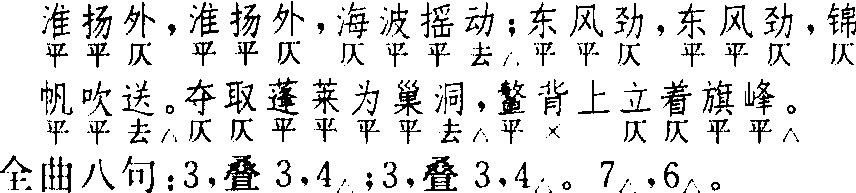 淮扬外，淮扬外，海波摇动；东风劲，东风劲，锦
平平仄 平平仄 仄平平去△平平仄 平平仄 仄
帆吹送。夺取蓬莱为巢洞，鳌背上立着旗峰。
平平去△仄仄平平平平去△平× 仄仄平平△
全曲八句：3，叠3，4△；3，叠3，4△。7△，6△。